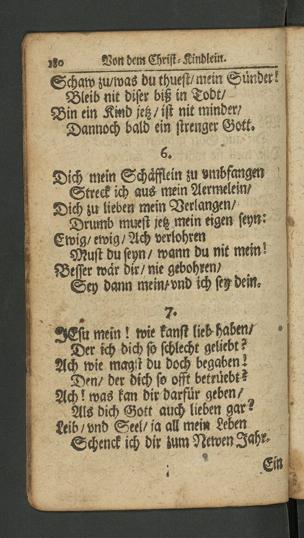 180 Von dem Christ-Kindlein.
Schaw zu/was du thuest/mein Sünder!
Bleib nit diser biß in Todt/
Bin ein Kind jetz/ist nit minder/
Dannoch bald ein strenger Gott.
6.
Dich mein Schäfflein zu vmbfangen
Streck ich aus mein Aermelein/
Dich zu lieben mein Verlangen/
Drumb muest jetz mein eigen seyn:
Ewig/ewig/Ach verlohren
Must du seyn/wann du nit mein!
Besser wär dir/nie gebohren/
Sey dann mein/vnd ich sey dein.
7.
JEsu mein! wie kanst lieb haben/
Der ich dich so schlecht geliebt?
Ach wie magst du doch begaben!
Den/der dich so offt betrüebt?
Ach! was kan dir darfür geben/
Als dich Gott auch lieben gar?
Leib/vnd Seel/ja all mein Leben
Schenck ich dir zum Newen Jahr.
Ein